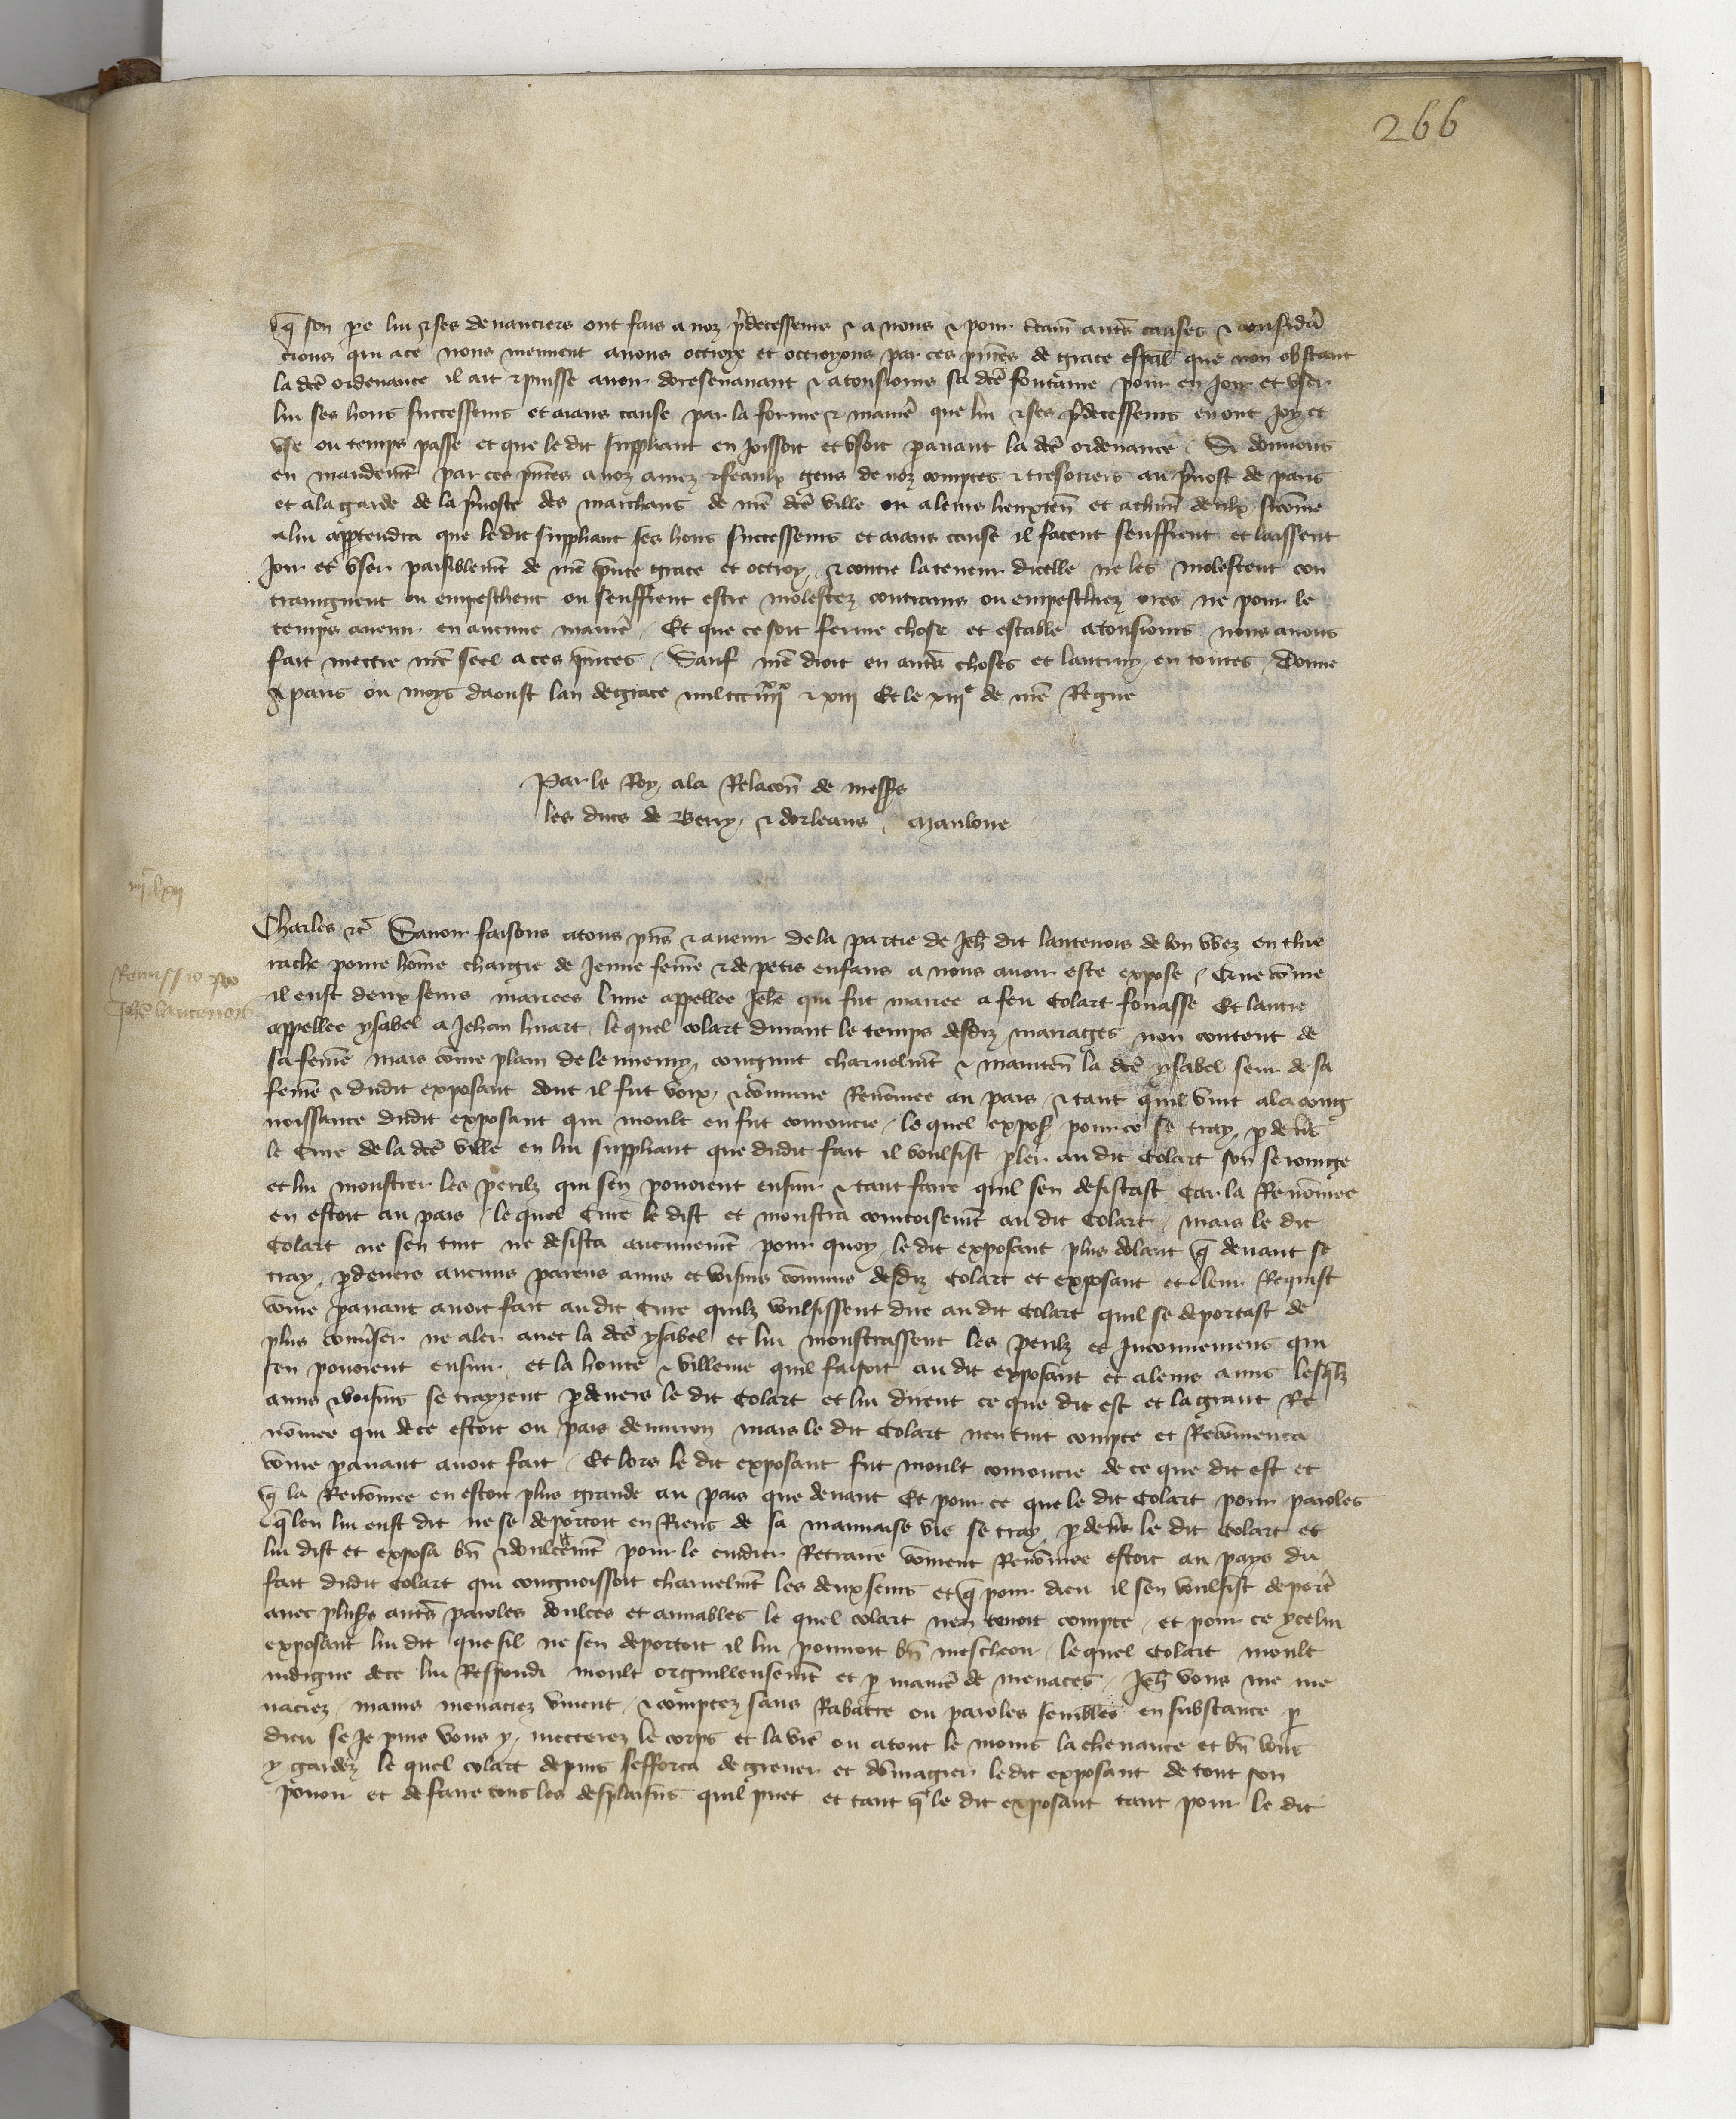 266
q̃ son pe lui & ses devanciers ont fais a noz p̃decesseurs & a nous & pour ctain autr̃s causes & considerã
cions qui a ce nous meuvent avons octroye et octroyons par ces pñtes de grace esp̃al que non obstant
la dcẽ ordenance il ait & puisse avoir doresenavant & a tousjours sa dcẽ fontaine pour en joir et user
lui ses hoirs successeurs et aians cause par la forme & manier̃ que lui & ses p̃decesseurs en ont joy et
use ou temps passe et que le dit suppliant en joissoit et usoit pavant la dcẽ ordenance. Si donnons
en mandemt̃ par ces pñtes a noz amez & feaulx gens de noz comptes & tresoriers au p̃vost de paris
et a la garde de la p̃voste des marchans de nr̃e dcẽ ville ou a leurs lieuxten̄ et a chun̄ deulx sicom̃e
a lui apptendra que le dit suppliant ses hoirs successeurs et aians cause il facent seuffrent et laissent
joir et user paisiblemt̃ de nr̃e pñte grace et octroy, & contre la teneur dicelle ne les molestent con
traingnent ou empeschent ou seuffrent estre molestez contrains ou empeschiez ores ne pour le
temps avenir en aucune manier̃. Et que ce soit ferme chose et estable a tousjours nous avons
fait mettre nr̃e seel a ces pñtes. Sauf nr̃e droit en autr̃s choses et lautruy en toutes. Donne
a paris ou moys daoust lan de grace mil ccc iiiixx & xiii Et le xiiie de nr̃e Regne
Par le Roy, a la Relacõn de messrs
les ducs de Berry, & dorleans. Manlone
iiic lxii
Remissio pro
Jeh̃ lantenois
Charles &c̃ Savoir faisons a tous pñs & avenir de la partie de Jeh̃ dit lantenois de bon vez en thie
rache povre hom̃e chargie de jeune fem̃e & de petis enfans a nous avoir este expose, Que cõme
il eust deux seurs mariees lune appellee Jehẽ qui fut mariee a feu Colart fouasse Et lautre
appellee ysabel a Jehan huart, le quel colart durant le temps desdiz mariages non content de
sa fem̃e mais cõme plain de lennemy, congnut charnelmt̃ & mainten̄ la dcẽ ysabel seur de sa
fem̃e & dudit exposant dont il fut voix, & cõmune Renõmee au pais, & tant quil vint a la cong
noissance dudit exposant qui moult en fut courroucie, le quel expos̃ pour ce se tray, p deṽs
le Cure de la dcẽ ville en lui suppliant que dudit fait il voulsist pler au dit Colart son serourge
et lui monstrer les perilz qui sen povoient ensuir & tant faire quil sen desistast Car la Renõmee
en estoit au pais, le quel Cure le dist et monstra courtoisemt̃ au dit Colart, mais le dit
Colart ne sen tint ne desista aucunemt̃ pour quoy, le dit exposant plus dolant q̃ devant se
tray, p devers aucuns parens amis et voisins cõmuns desdiz Colart et exposant et leur Requist
cõme pavant avoit fait au dit Cure quilz voulsissent dire au dit Colart quil se deportast de
plus conṽser ne aler avec la dcẽ ysabel et lui monstrassent les perilz et Inconveniens qui
sen povoient ensuir, et la honte & villenie quil faisoit au dit exposant et a leurs amis lesqlz
amis & voisins se trayrent p devers le dit Colart et lui dirent ce que dit est et la grant Re
nõmee qui de ce estoit ou pais denviron mais le dit Colart nen tint compte et Recõmenca
cõme pavant avoit fait. Et lors le dit exposant fut moult courroucie de ce que dit est et
q̃ la Renõmee en estoit plus grande au pais que devant Et pour ce que le dit Colart pour paroles
q̃ len lui eust dit ne se deportoit en Riens de sa mauvaise vie se tray, p deṽs le dit Colart et
lui dist et exposa bn̄ & doulcemt̃ pour le cuidier Retraire cõment Renõmee estoit au pays du
fait dudit Colart qui congnoissoit charnelmt̃ les deux seurs et q̃ pour dieu il sen voulsist deporter̃
avec plusrs autr̃s paroles doulces et amiables le quel colart nen tenoit compte, et pour ce ycelui
exposant lui dit que sil ne sen deportoit il lui pourroit bn̄ mescheoir, le quel Colart moult
indigne de ce lui Respondi moult orguilleusemt̃ et p manier̃ de menaces, Jeh̃ vous me me
naciez, mains menaciez vivent, & comptez sans Rabatre ou paroles semblẽs en substance p
dieu se je puis vous y, metterez le corps et la vie ou a tout le moins la chevance et bn̄ vous
y gardez le quel colart depuis sefforca de grever et dõmagier le dit exposant de tout son
povoir et de faire tous les desplaisirs quil puet et tant q̃ le dit exposant tant pour le dit